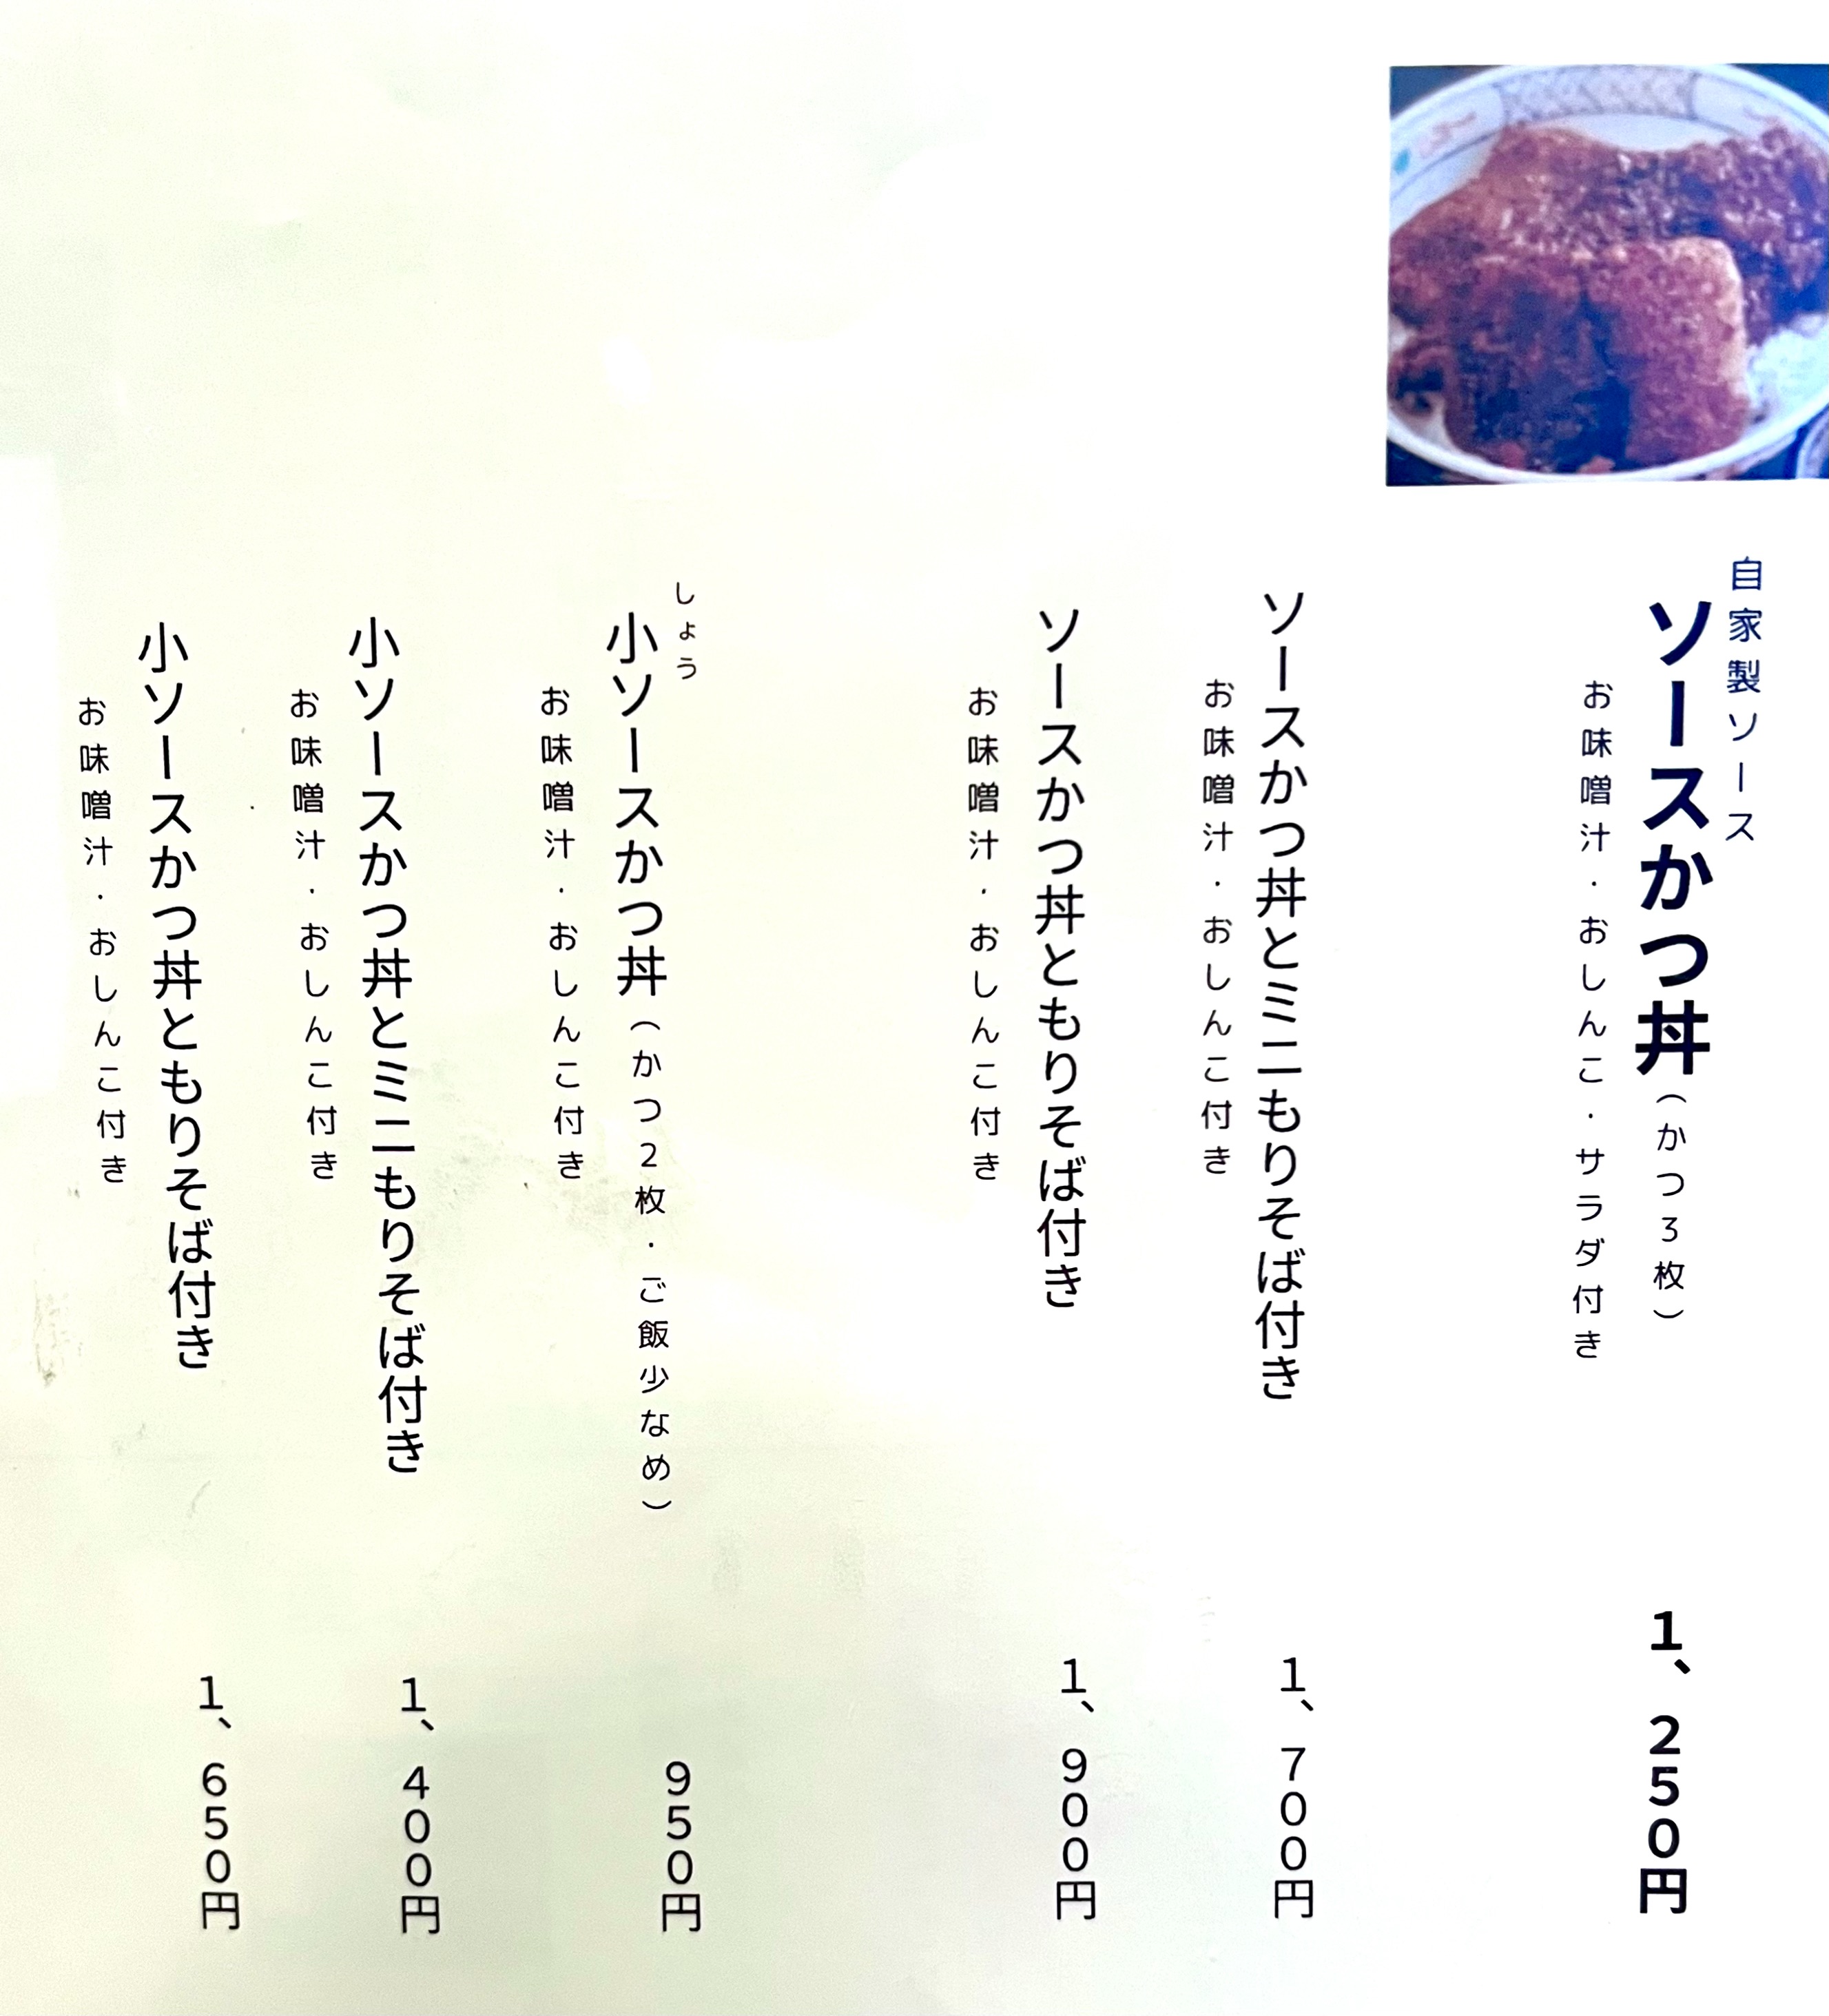 自家製ソース
ソースかつ丼(かつ3枚) 1、250円
お味噌汁・おしんこ・サラダ付き
ソースかつ丼とミニもりそば付き 1、700円
お味噌汁・おしんこ付き
ソースかつ丼ともりそば付き 1、900円
お味噌汁・おしんこ付き
しょう
小ソースかつ丼(かつ2枚・ご飯少なめ) 950円
お味噌汁・おしんこ付き
小ソースかつ丼とミニもりそば付き 1、400円
お味噌汁・おしんこ付き
小ソースかつ丼ともりそば付き 1、650円
お味噌汁・おしんこ付き